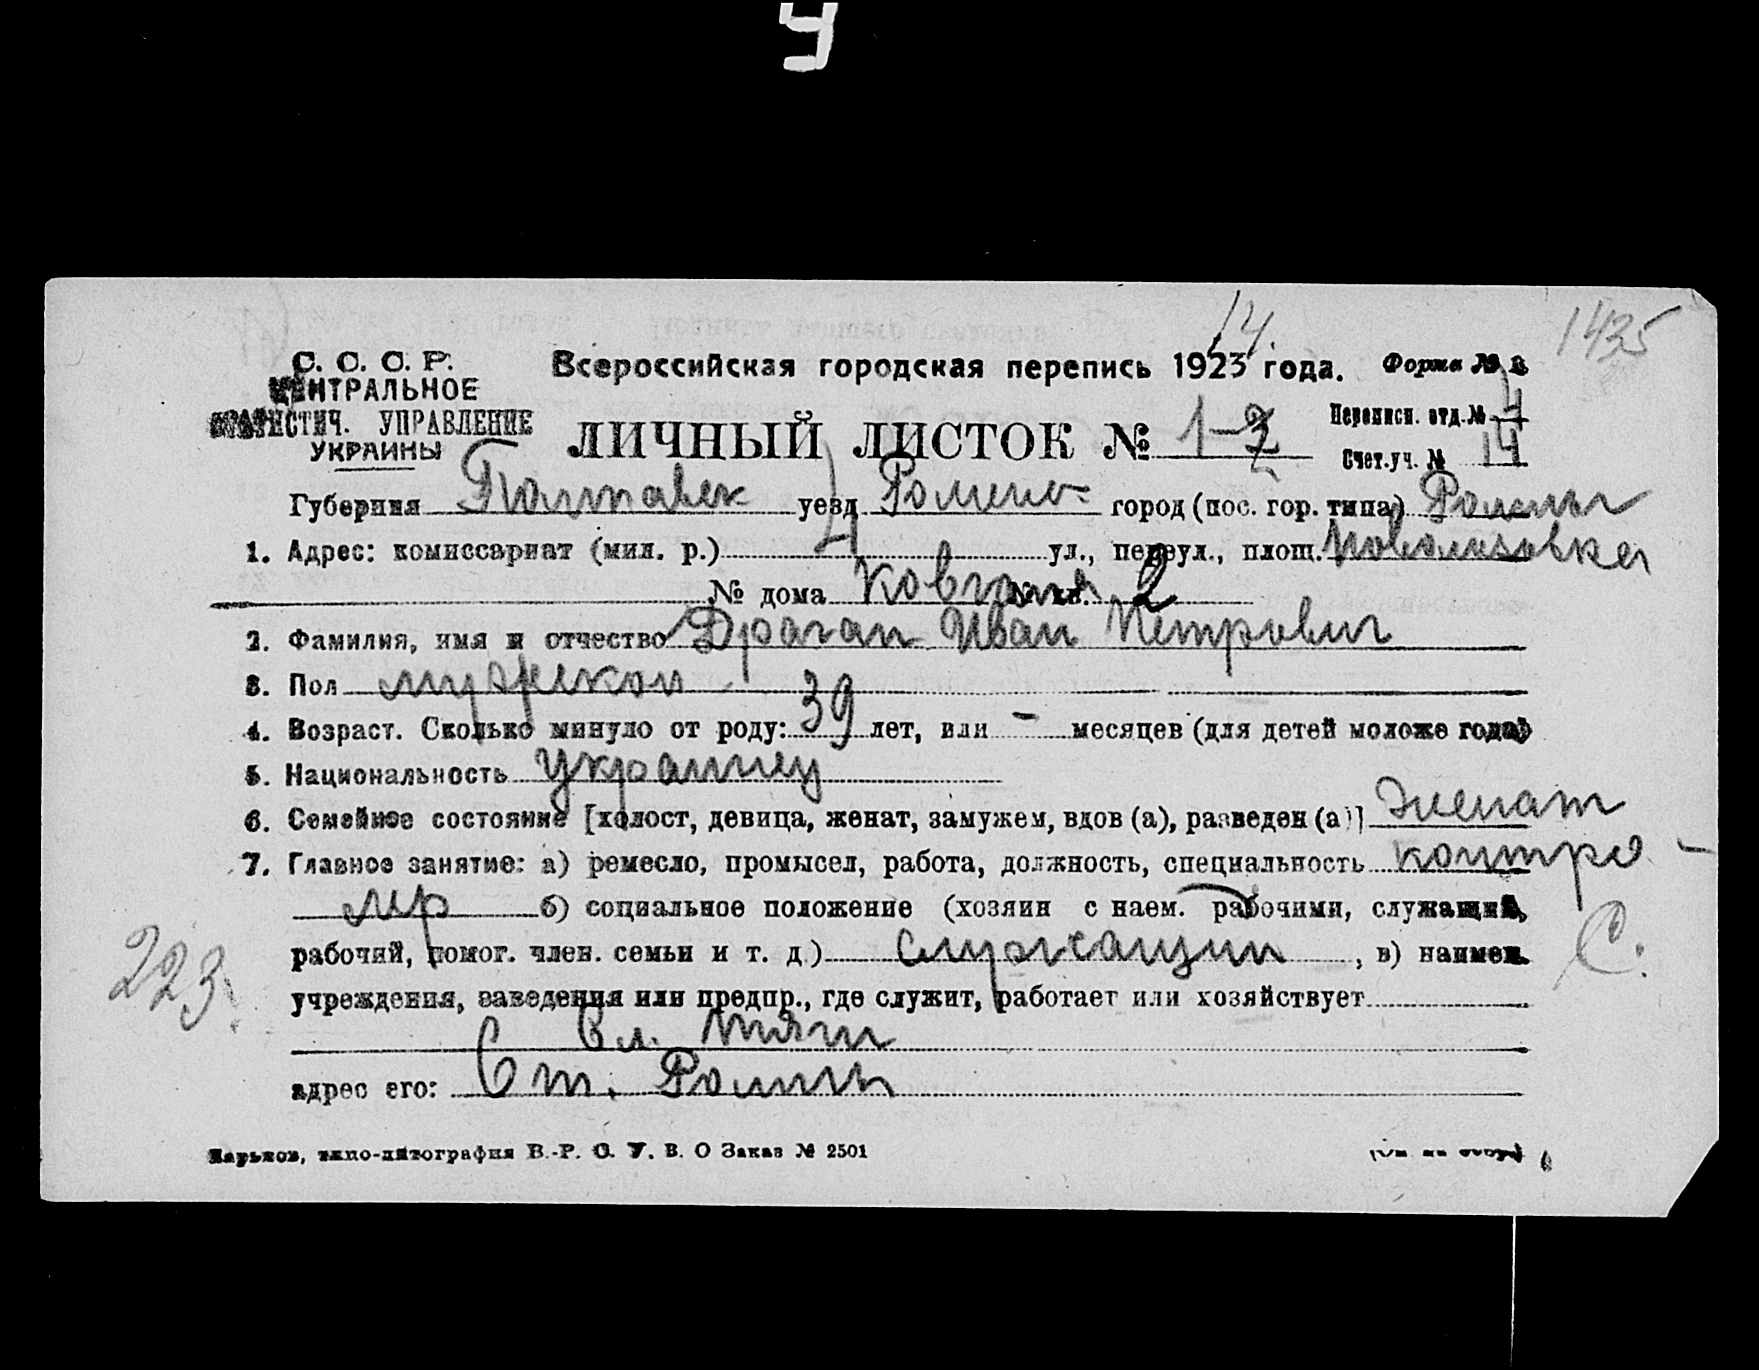 У
14.
1425
С. С. С. Р.
ЦЕНТРАЛЬНОЕ
СТАТИСТИЧ. УПРАВЛЕНИЕ
УКРАИНЫ
Всероссийская городская перепись 1923 года. Форма №
Переписн. отд. № 4
ЛИЧНЫЙ ЛИСТОК № 1-2
Счет. уч. № 14
Губерния Полтавск уезд Роменс- город (пос. гор. типа) Ромны
1. Адрес: комиссариат (мил. р.) 4 ул., переул., площ.
№ дома № кв. 2
2. Фамилия, имя и отчество Драган Иван Петрович
3. Пол мужской
4. Возраст. Сколько минуло от роду: 39 лет, или - месяцев (для детей моложе года)
5. Национальность украинец
6. Семейное состояние [холост, девица, женат, замужем, вдов (а), разведен (а)] женат
7. Главное занятие: а) ремесло, промысел, работа, должность, специальность контро-
лер б) социальное положение (хозяин с наем. рабочими, служащий,
рабочий, помог. член. семьи и т. д.) служащий, в) наимен.
С.
223.
учреждения, заведения или предпр., где служит, работает или хозяйствует
Сл. тяги
адрес его: Ст. Ромны
Харьков, типо-литография В.-Р. С. У. В. О Заказ № 2501